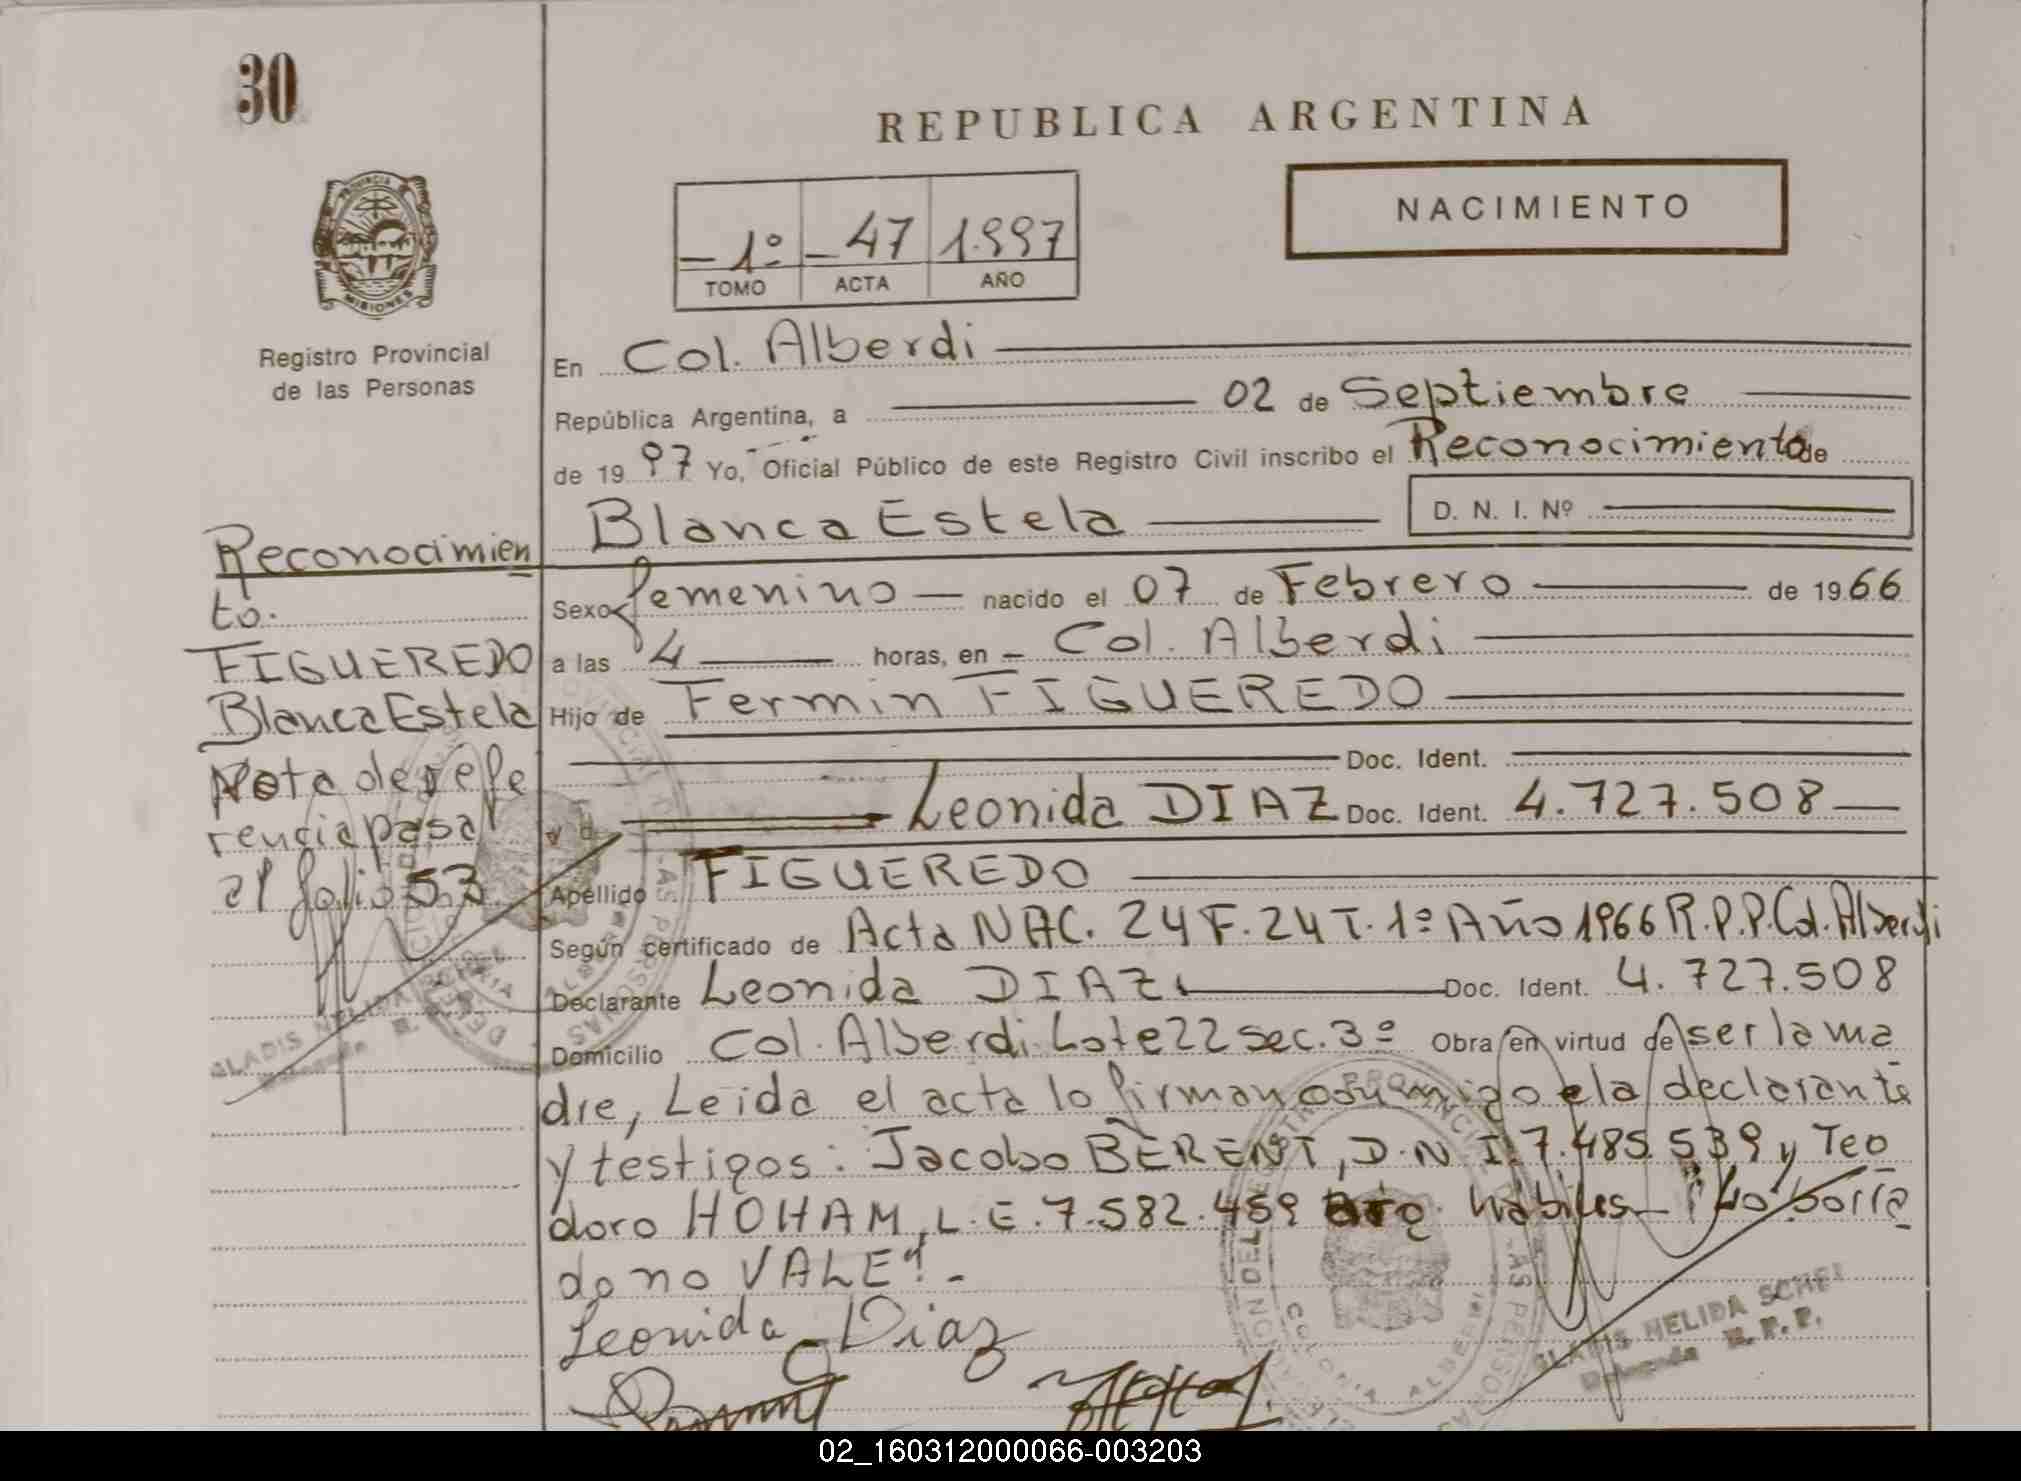 30
REPUBLICA ARGENTINA
PROVINCIA
MISIONES
NACIMIENTO
-1º -47 1.997
TOMO ACTA AÑO
Registro Provincial
de las Personas
En Col. Alberdi
República Argentina, a 02 de Septiembre
de 1997 Yo, Oficial Público de este Registro Civil inscribo el Reconocimiento de
Blanca Estela D. N. I. Nº
Reconocimien
to.
FIGUEREDO
Blanca Estela
Nota de refe
rencia pasa
al folio 53
Sexo femenino nacido el 07 de Febrero de 1966
a las 4 horas, en - Col. Alberdi
Hijo de Fermin FIGUEREDO
Doc. Ident.
y de Leonida DIAZ Doc. Ident. 4.727.508
Apellido FIGUEREDO
Según certificado de Acta NAC. 24 F. 24 T. 1º Año 1966 R.P.P. Col. Alberdi
Declarante Leonida DIAZ Doc. Ident. 4.727.508
Domicilio Col. Alberdi Lote 22 sec. 3º Obra en virtud de ser la ma
dre, Leida el acta lo firman la declarante
y testigos: Jacobo BERENT, D.N.I. 7.485.539 y Teo
doro HOHAM, L.E. 7.582.459 hábiles- Lo borra
do no VALE!-
Leonida Diaz
GLADIS NELIDA
GLADIS NELIDA
Delegada R. P. P.
COLONIA ALBERDI
02_160312000066-003203